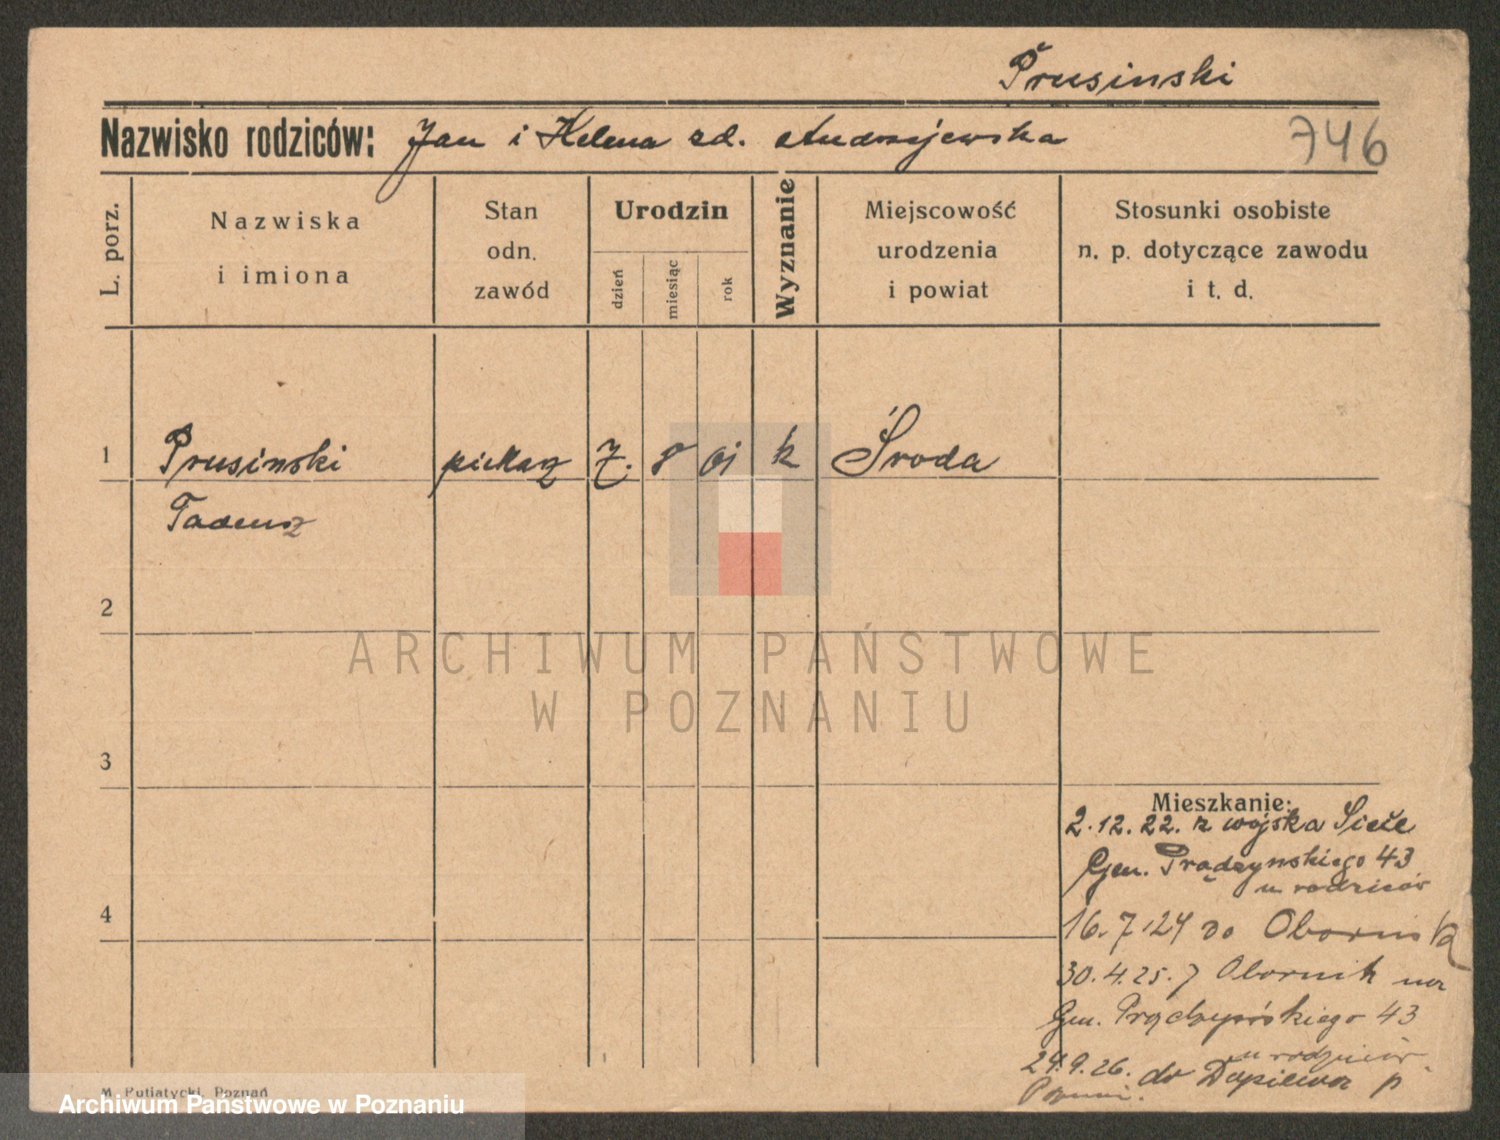 Prusinski
Nazwisko rodziców: Jan i Helena zd. Andrzejewska 746
L. porz.
Nazwiska
i imiona
Stan
odn.
zawód
Urodzin
dzień
miesiąc
rok
Wyznanie
Miejscowość
urodzenia
i powiat
Stosunki osobiste
n. p. dotyczące zawodu
i t. d.
1 Prusinski piekarz 7. 8 01 k Środa
Tadeusz
2
ARCHIWUM PAŃSTWOWE
W POZNANIU
3
Mieszkanie:
2.12.22. z wojska
Gen. Prądzynskiego 43
u rodziców
4
16.7.24 do Obornik
30.4.25. z Obornik na
Gen. Prądzyńskiego 43
u rodziców
24.9.26. do p.
M. Putiatycki, Poznań
Archiwum Państwowe w Poznaniu